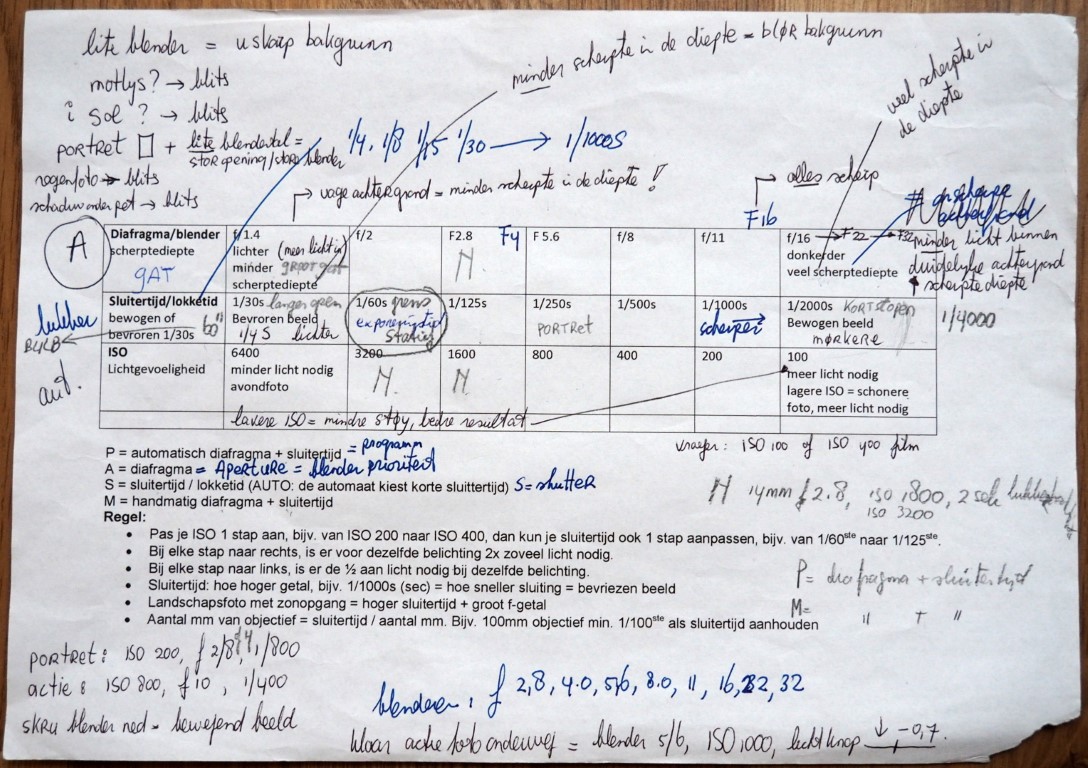 lite blender = uskarp bakgrunn
motlys? → blits
i sol ? → blits
minder scherpte in de diepte = bløR bakgrunn
veel scherpte in de diepte
PORTRET + lite blendertal =
stor opening/store blender
1/4, 1/8 1/15 1/30 → 1/1000S
regenfoto → blits
schaduw onder pet → blits
vage achtergrond = minder scherpte in de diepte !
alles scherp
F16
onscherpe achtergrond
A
Diafragma/blender scherptediepte GAT
f/1.4 lichter (meer licht in) minder groot gat scherptediepte
f/2
F2.8 N
F4
F5.6
f/8
f/11
f/16 → F22 → F32 donkerder veel scherptediepte
minder licht binnen
duidelijke achtergrond
scherpte diepte
lukker
BULB
aut.
Sluitertijd/lokketid bewogen of bevroren 1/30s 60"
1/30s langer open Bevroren beeld 1/4 S lichter
1/60s grens statief
1/125s
1/250s PORTRET
1/500s
1/1000s scherper
1/2000s KORTSt open Bewogen beeld MØRKERE
1/4000
ISO Lichtgevoeligheid
6400 minder licht nodig avondfoto
3200 N
1600 N
800
400
200
100 meer licht nodig lagere ISO = schonere foto, meer licht nodig
lavere ISO = mindre støy, bedre resultat
vroeger: ISO 100 of ISO 400 film
P = automatisch diafragma + sluitertijd = programm
A = diafragma = Aperture = blender prioritert
S = sluitertijd / lokketid (AUTO: de automaat kiest korte sluittertijd) S = shutter
M = handmatig diafragma + sluitertijd
N 14mm f 2.8, ISO 1800, 2 sek
ISO 3200
Regel:
• Pas je ISO 1 stap aan, bijv. van ISO 200 naar ISO 400, dan kun je sluitertijd ook 1 stap aanpassen, bijv. van 1/60ste naar 1/125ste.
• Bij elke stap naar rechts, is er voor dezelfde belichting 2x zoveel licht nodig.
• Bij elke stap naar links, is er de ½ aan licht nodig bij dezelfde belichting.
• Sluitertijd: hoe hoger getal, bijv. 1/1000s (sec) = hoe sneller sluiting = bevriezen beeld
• Landschapsfoto met zonopgang = hoger sluitertijd + groot f-getal
• Aantal mm van objectief = sluitertijd / aantal mm. Bijv. 100mm objectief min. 1/100ste als sluitertijd aanhouden
P = diafragma + sluitertijd
M = " + "
PORTRET: ISO 200, f 2/8, f4, 1/800
actie : ISO 800, f10, 1/400
SKRU blender ned = bewegend beeld
blenderen: f 2,8, 4.0, 5,6, 8.0, 11, 16, 22, 32
Klaar actie foto onderweg = blender 5/6, ISO 1000, lichtknop ↓ -0,7.